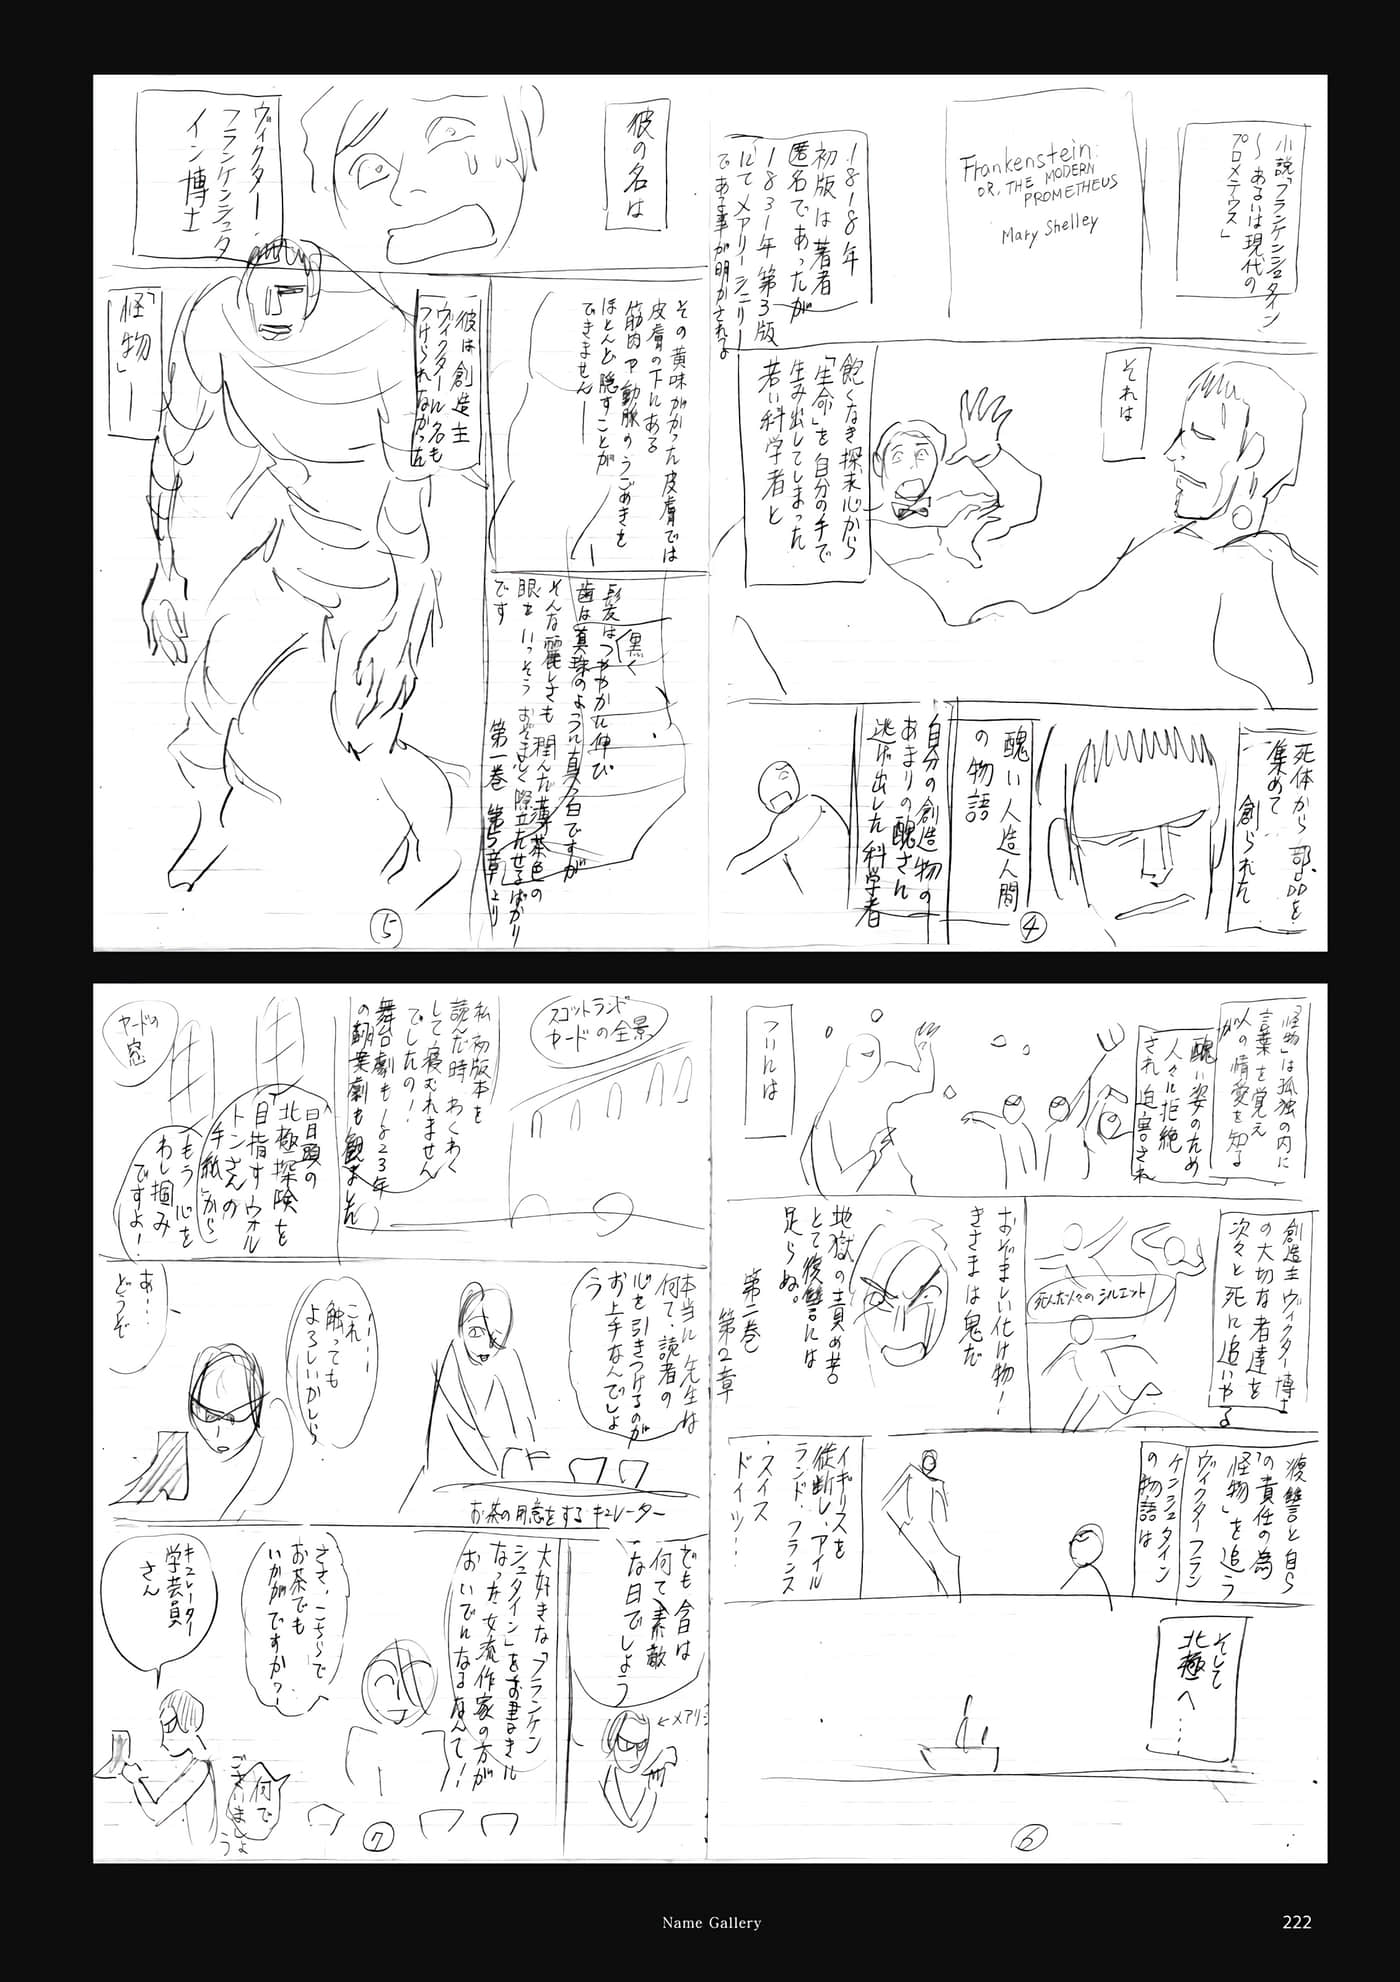 小説「フランケンシュタイン
〜あるいは現代の
プロメテウス」
Frankenstein:
OR, THE MODERN
PROMETHEUS
Mary Shelley
1818年
初版は著者
匿名であったが
1831年第3版
にてメアリー・シェリー
である事が明かされる
それは
飽くなき探求心から
「生命」を自分の手で
生み出してしまった
若い科学者と
死体から部品を
集めて
創られた
醜い人造人間
の物語
自分の創造物の
あまりの醜さに
逃げ出した科学者
④
彼の名は
ヴィクター・
フランケンシュタ
イン博士
その黄味がかった皮膚では
皮膚の下にある
筋肉や動脈のうごめきを
ほとんど隠すことが
できません――
髪はつややかに伸び
黒く
歯は真珠のように真っ白ですが
そんな麗しさも潤んだ薄茶色の
眼をいっそうおぞましく際立たせるばかり
です
第一巻 第5章より
彼は創造主
ヴィクターに名も
つけられなかった
「怪物」―
⑤
「怪物」は孤独の内に
言葉を覚え
人の情愛を知る
が
醜い姿のため
人々に拒絶
され迫害され
ついには
創造主ヴィクター博士
の大切な者達を
次々と死に追いやる
死んだ人々のシルエット
おぞましい化け物!
きさまは鬼だ
地獄の責め苦
とて復讐には
足らぬ。
第二巻
第2章
復讐と自ら
の責任の為
「怪物」を追う
ヴィクター・フラン
ケンシュタイン
の物語は
イギリスを
縦断し、アイル
ランド、フランス
、スイス
ドイツ…
そして
北極へ……
⑥
スコットランド
ヤードの全景
私 初版本を
読んだ時 わくわく
して寝むれません
でしたの!
舞台劇も1823年
の翻案劇も観ました
ヤードの
窓
冒頭の
北極探険を
目指すウォル
トンさんの
「手紙」から
もう 心を
わし掴み
ですよ!
本当に先生は
何て、読者の
心を引きつけるのが
お上手なんでしょ
う
お茶の用意をするキュレーター
……
これ
触っても
よろしいかしら
あ…
どうぞ
でも今日は
何て素敵
な日でしょう
←メアリ
大好きな「フランケン
シュタイン」をお書きに
なった女流作家の方が
おいでになるなんて!
ささ、こちらで
お茶でも
いかがですか?
キュレーター
学芸員
さん
何で
ございましょ
う
⑦
Name Gallery
222